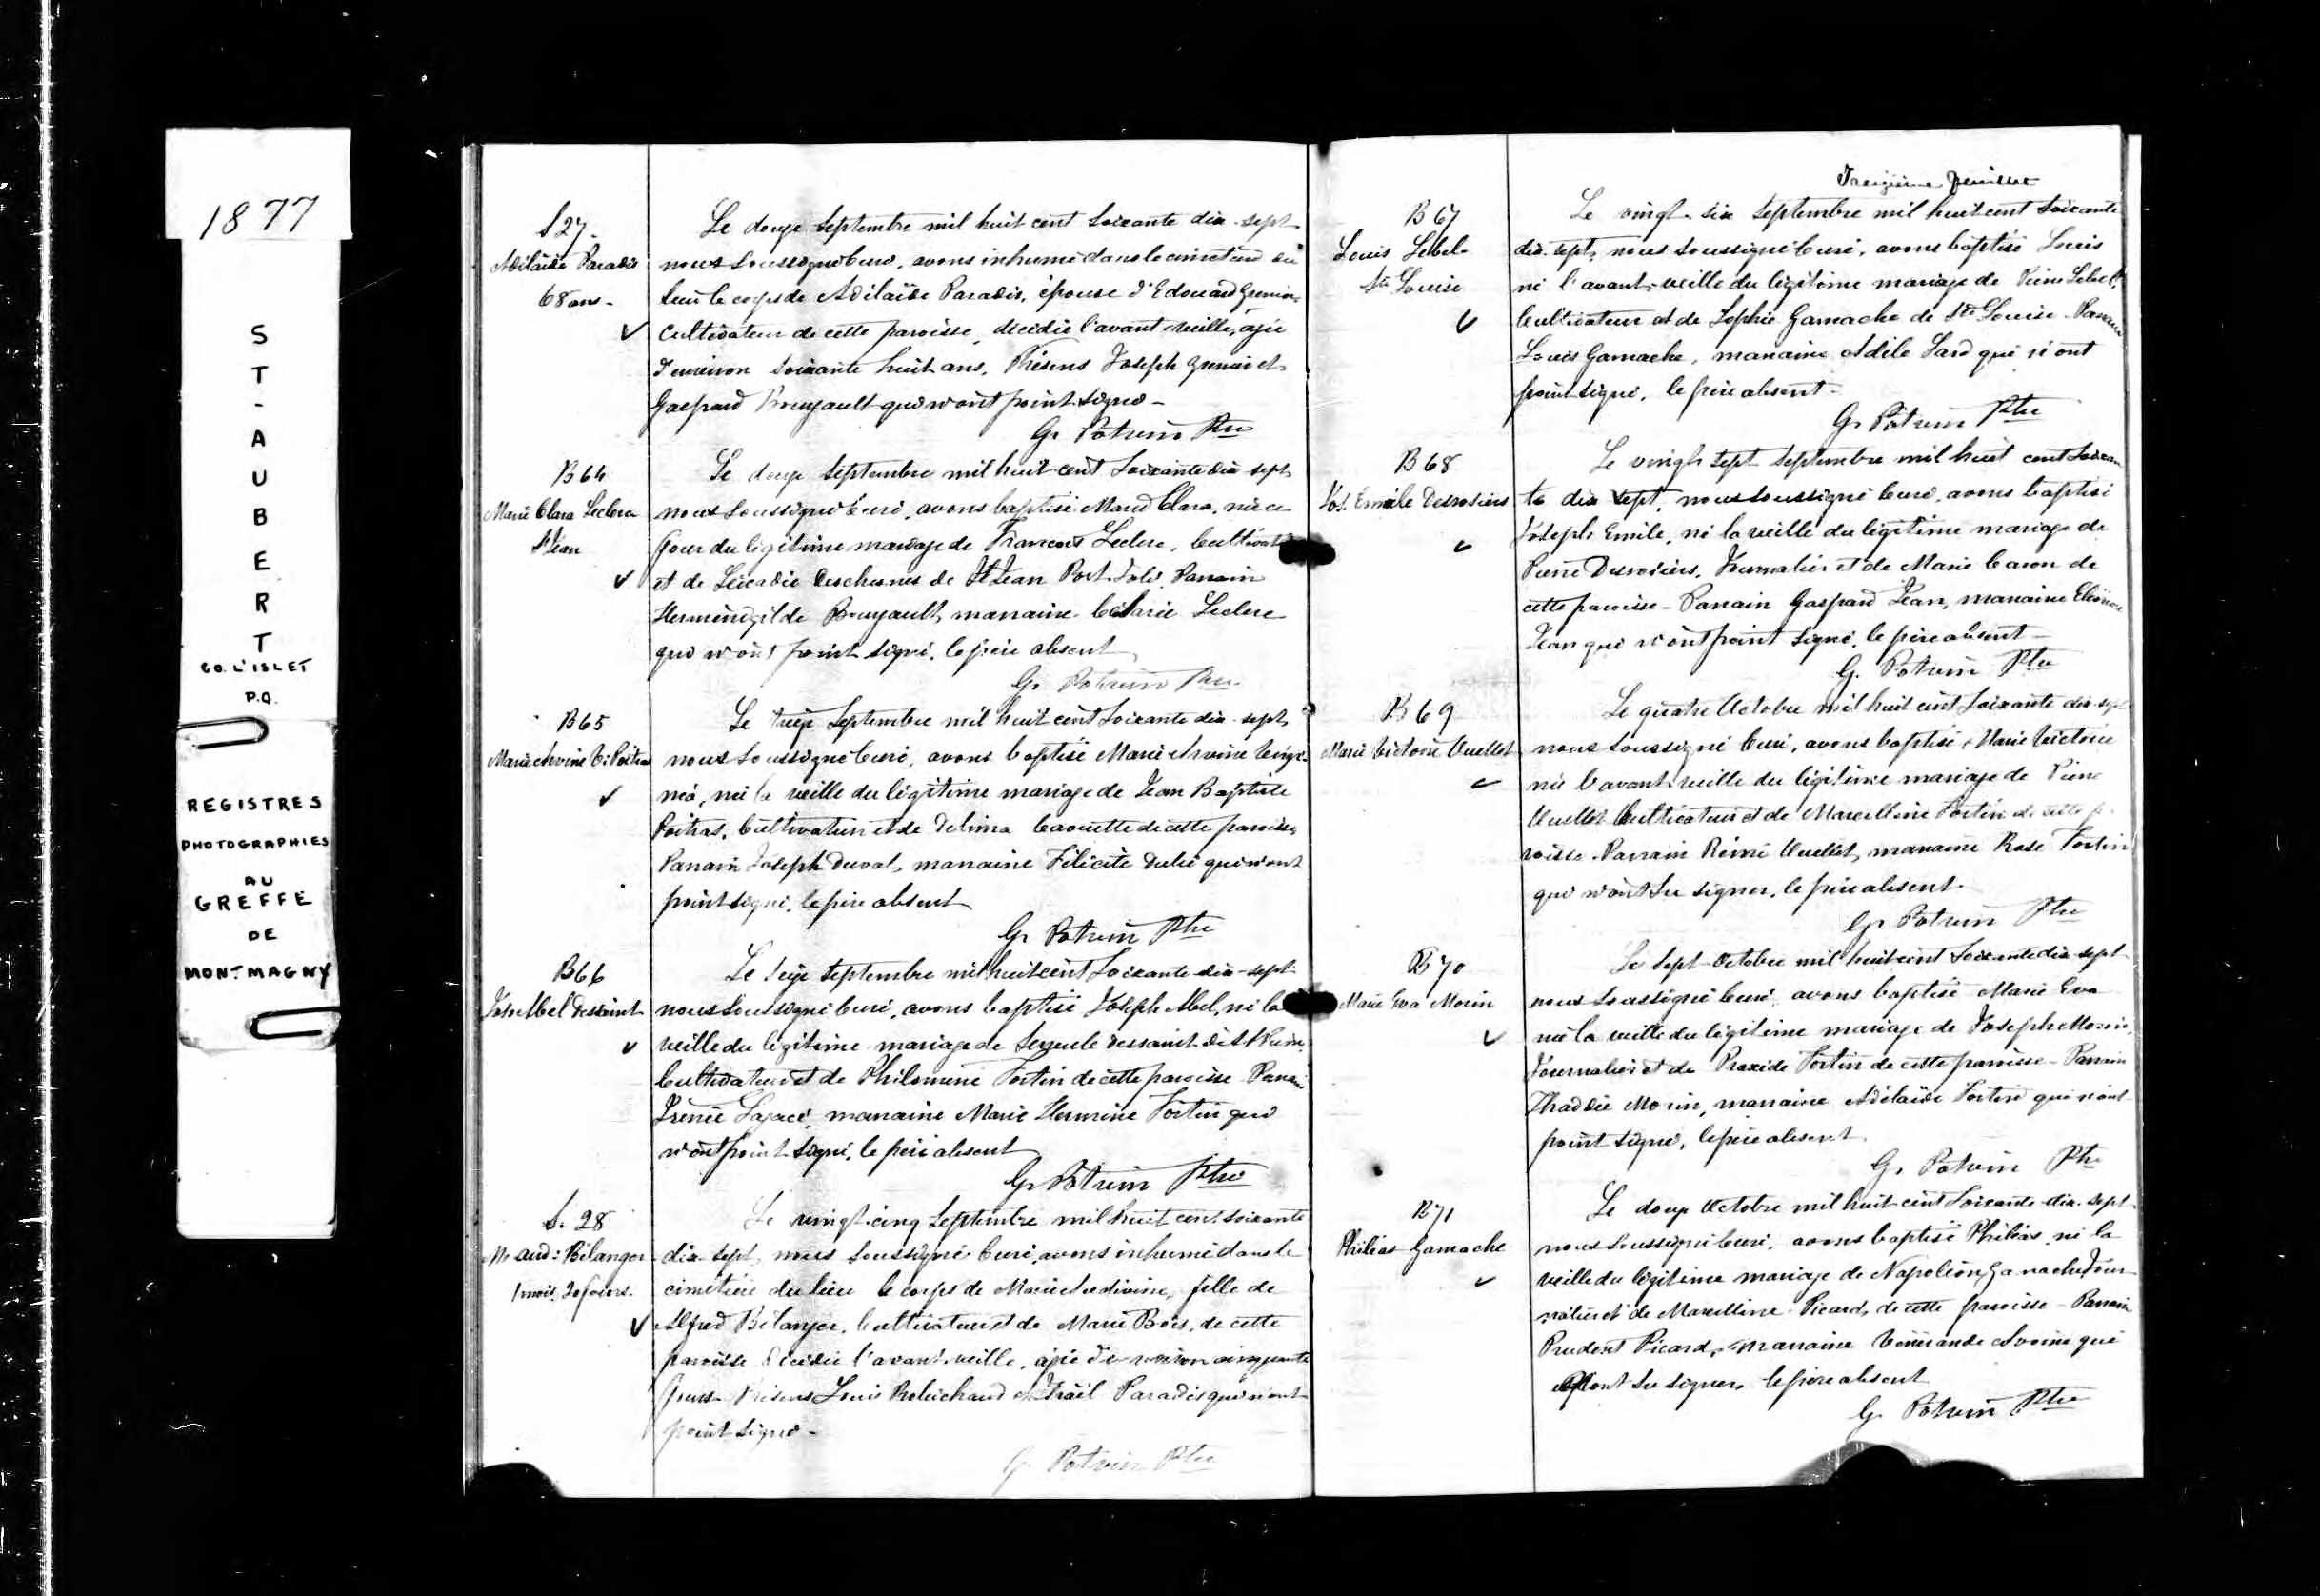 1877
ST-AUBERT
CO. L'ISLET
P.Q.
REGISTRES
PHOTOGRAPHIES
AU
GREFFE
DE
MONTMAGNY
S 27.
Adélaïde Paradis
68 ans.
Le douze Septembre mil huit cent soixante dix-sept
nous soussigné Curé, avons inhumé dans le cimetière du
lieu le corps de Adélaïde Paradis, épouse d'Edouard Grenier
Cultivateur de cette paroisse, décédée l'avant veille, agée
d'environ soixante huit ans, Présens Joseph Grenier et
Gaspard qui n'ont point signé -
G. Potvin Ptre
B 64
Marie Clara Leclerc
St Jean
Le douze Septembre mil huit cent soixante dix sept
nous soussigné Curé, avons baptisé Marie Clara, née ce
jour du légitime mariage de François Leclerc, Cultivateur
et de Léocadie Deschesnes de St Jean Port Joli, Parrain
Herménégilde marraine Leclerc
qui n'ont point signé, le père absent
G. Potvin Ptre
B 65
Marie V: Poitras
Le treize Septembre mil huit cent soixante dix-sept
nous soussigné Curé, avons baptisé Marie
née la veille du légitime mariage de Jean Baptiste
Poitras, Cultivateur et de Delima Caouette de cette paroisse,
Parrain Joseph Duval, marraine Félicité Dubé qui n'ont
point signé, le père absent
G. Potvin Ptre
B 66
Jos. Abel Dessaint
Le seize Septembre mil huit cent soixante-dix-sept
nous soussigné Curé, avons baptisé Joseph Abel, né la
veille du légitime mariage de Dessaint dit St Pierre,
Cultivateur et de Philomène Fortin de cette paroisse Parrain
Irénée marraine Marie Hermine Fortin qui
n'ont point signé, le père absent
G. Potvin Ptre
S. 28
M. aud: Bélanger
1 mois, 20 jours.
Le vingt-cinq Septembre mil huit cent soixante
dix-sept, nous soussigné Curé, avons inhumé dans le
cimetière du lieu le corps de Marie fille de
Alfred Bélanger, Cultivateur et de Marie Bois, de cette
paroisse décédée l'avant-veille, agée d'environ cinquante
jours Présens Louis Robichaud et Israël Paradis qui n'ont
point signé -
G. Potvin Ptre
Treizième feuillet
B 67
Louis Lebel
Ste Louise
Le vingt-six Septembre mil huit cent soixante
dix-sept, nous soussigné Curé, avons baptisé Louis
né l'avant-veille du légitime mariage de Pierre Lebel,
Cultivateur et de Sophie Gamache de Ste Louise - Parrain
Louis Gamache, marraine Adèle qui n'ont
point signé, le père absent -
G. Potvin Ptre
B 68
Jos. Emile Desrosiers
Le vingt sept Septembre mil huit cent soixan
te dix sept, nous soussigné Curé, avons baptisé
Joseph Emile, né la veille du légitime mariage de
Pierre Desrosiers, Journalier et de Marie Caron de
cette paroisse - Parrain Gaspard Jean, marraine Eléonore
Jean qui n'ont point signé, le père absent -
G. Potvin Ptre
B 69
Marie Victoire Ouellet
Le quatre Octobre mil huit cent soixante dix-sept
nous soussigné Curé, avons baptisé Marie Victoire
née l'avant-veille du légitime mariage de Pierre
Ouellet Cultivateur et de Marcelline Fortin de cette pa
roisse - Parrain Rémi Ouellet, marraine Rose Fortin
qui n'ont su signer, le père absent.
G. Potvin Ptre
B 70
Marie Eva Morin
Le sept Octobre mil huit cent soixante dix-sept
nous soussigné Curé, avons baptisé Marie Eva
née la veille du légitime mariage de Joseph Morin,
Journalier et de Praxède Fortin de cette paroisse - Parrain
Thaddée Morin, marraine Adélaïde Fortin qui n'ont
point signé, le père absent.
G. Potvin Ptre
B 71
Philéas Gamache
Le douze Octobre mil huit cent soixante-dix-sept
nous soussigné Curé, avons baptisé Philéas, né la
veille du légitime mariage de Napoléon Gamache Jour
nalier et de Marcelline Picard, de cette paroisse - Parrain
Prudent Picard, marraine qui
n'ont su signer, le père absent
G. Potvin Ptre